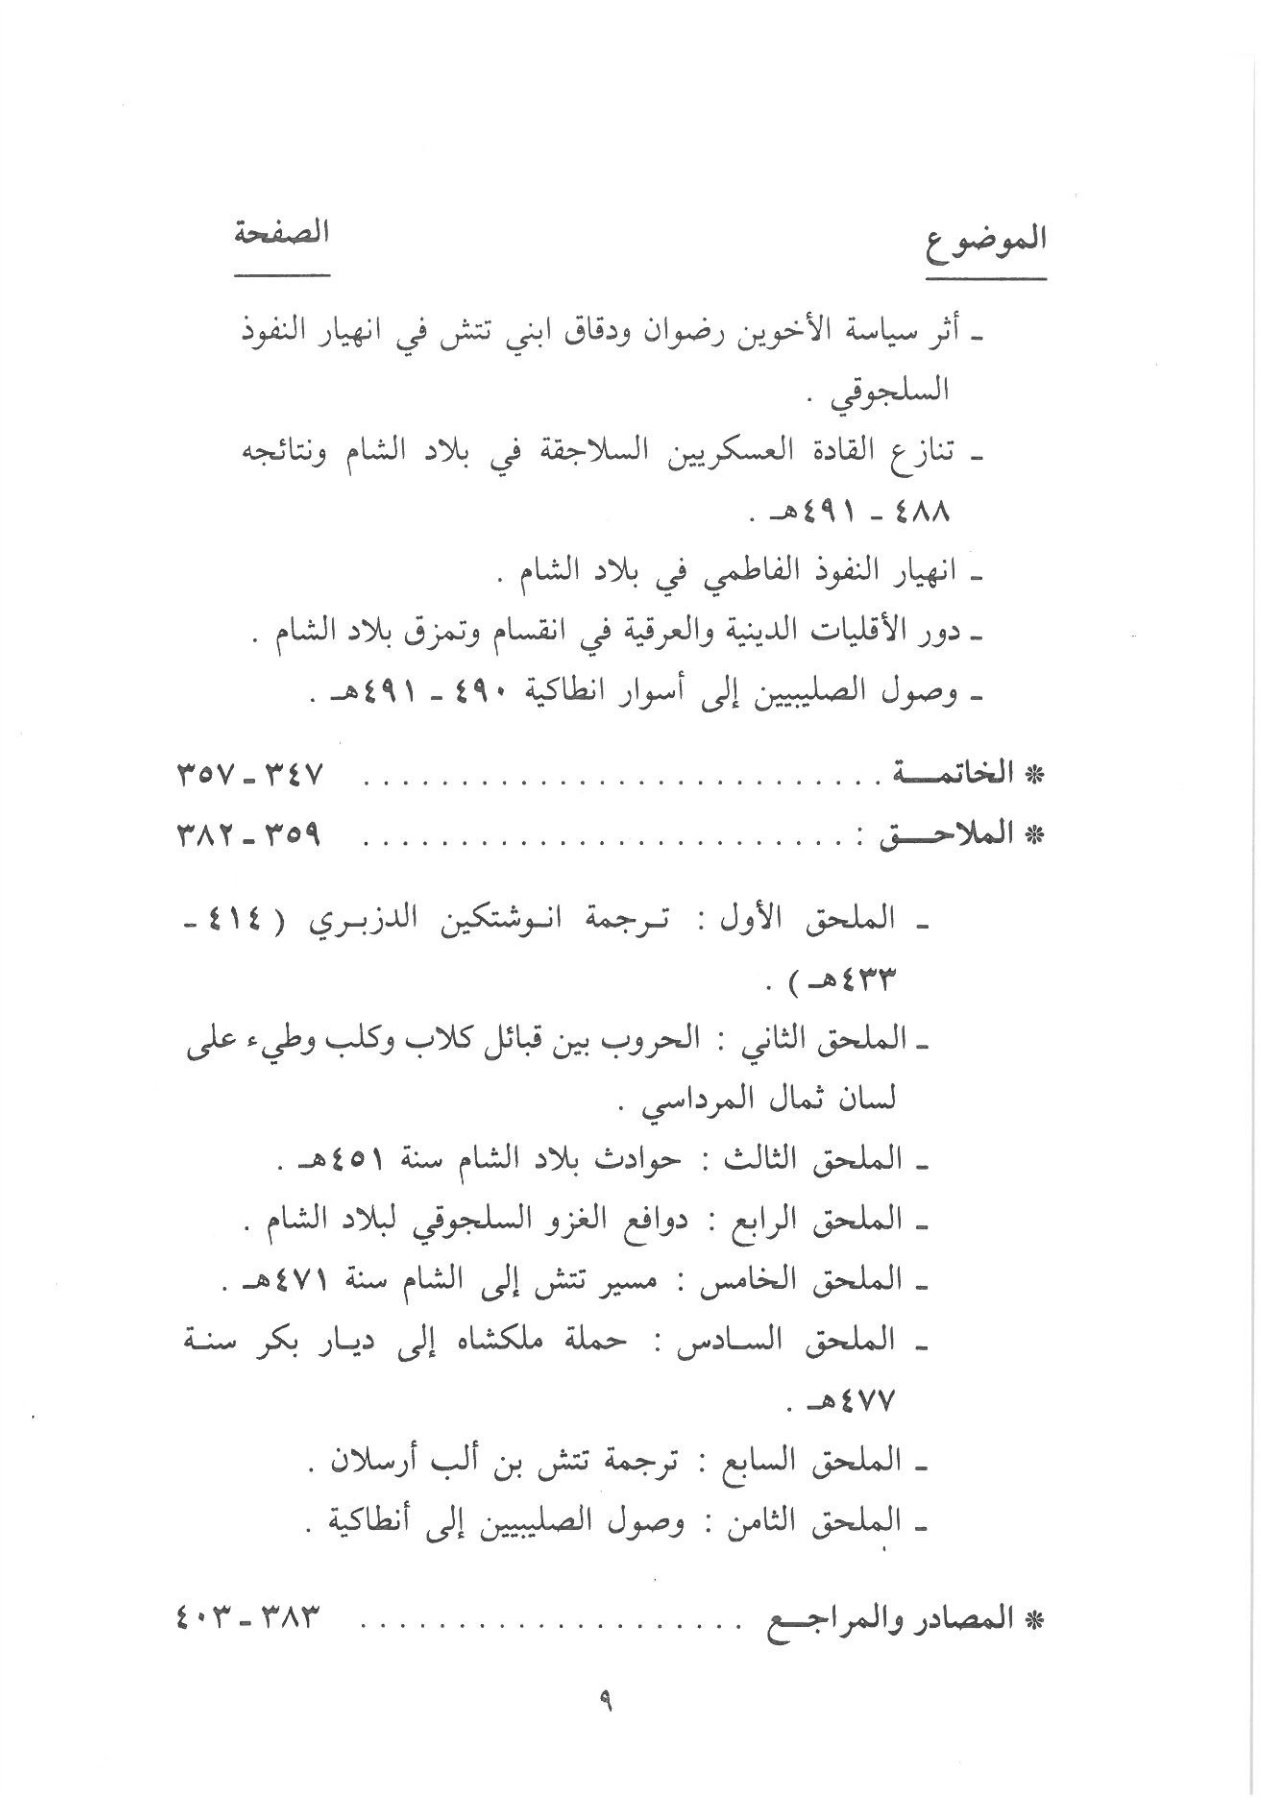 الموضوع الصفحة
ـ أثر سياسة الأخوين رضوان ودقاق ابني تتش في انهيار النفوذ
السلجوقي .
ـ تنازع القادة العسكريين السلاجقة في بلاد الشام ونتائجه
٤٨٨ ـ ٤٩١هـ .
ـ انهيار النفوذ الفاطمي في بلاد الشام .
ـ دور الأقليات الدينية والعرقية في انقسام وتمزق بلاد الشام .
ـ وصول الصليبيين إلى أسوار انطاكية ٤٩٠ ـ ٤٩١هـ .
* الخاتمـــة . . . . . . . . . . . . . . . . . . . . . . . . . . . ٣٤٧ ـ ٣٥٧
* الملاحـــق : . . . . . . . . . . . . . . . . . . . . . . . . . ٣٥٩ ـ ٣٨٢
ـ الملحق الأول : تـرجمة انـوشتكين الدزبـري ( ٤١٤ ـ
٤٣٣هـ ) .
ـ الملحق الثاني : الحروب بين قبائل كلاب وكلب وطيء على
لسان ثمال المرداسي .
ـ الملحق الثالث : حوادث بلاد الشام سنة ٤٥١هـ .
ـ الملحق الرابع : دوافع الغزو السلجوقي لبلاد الشام .
ـ الملحق الخامس : مسير تتش إلى الشام سنة ٤٧١هـ .
ـ الملحق السـادس : حملة ملكشاه إلى ديـار بكر سنـة
٤٧٧هـ .
ـ الملحق السابع : ترجمة تتش بن ألب أرسلان .
ـ الملحق الثامن : وصول الصليبيين إلى أنطاكية .
* المصادر والمراجـــع . . . . . . . . . . . . . . . . . . . . ٣٨٣ ـ ٤٠٣
٩